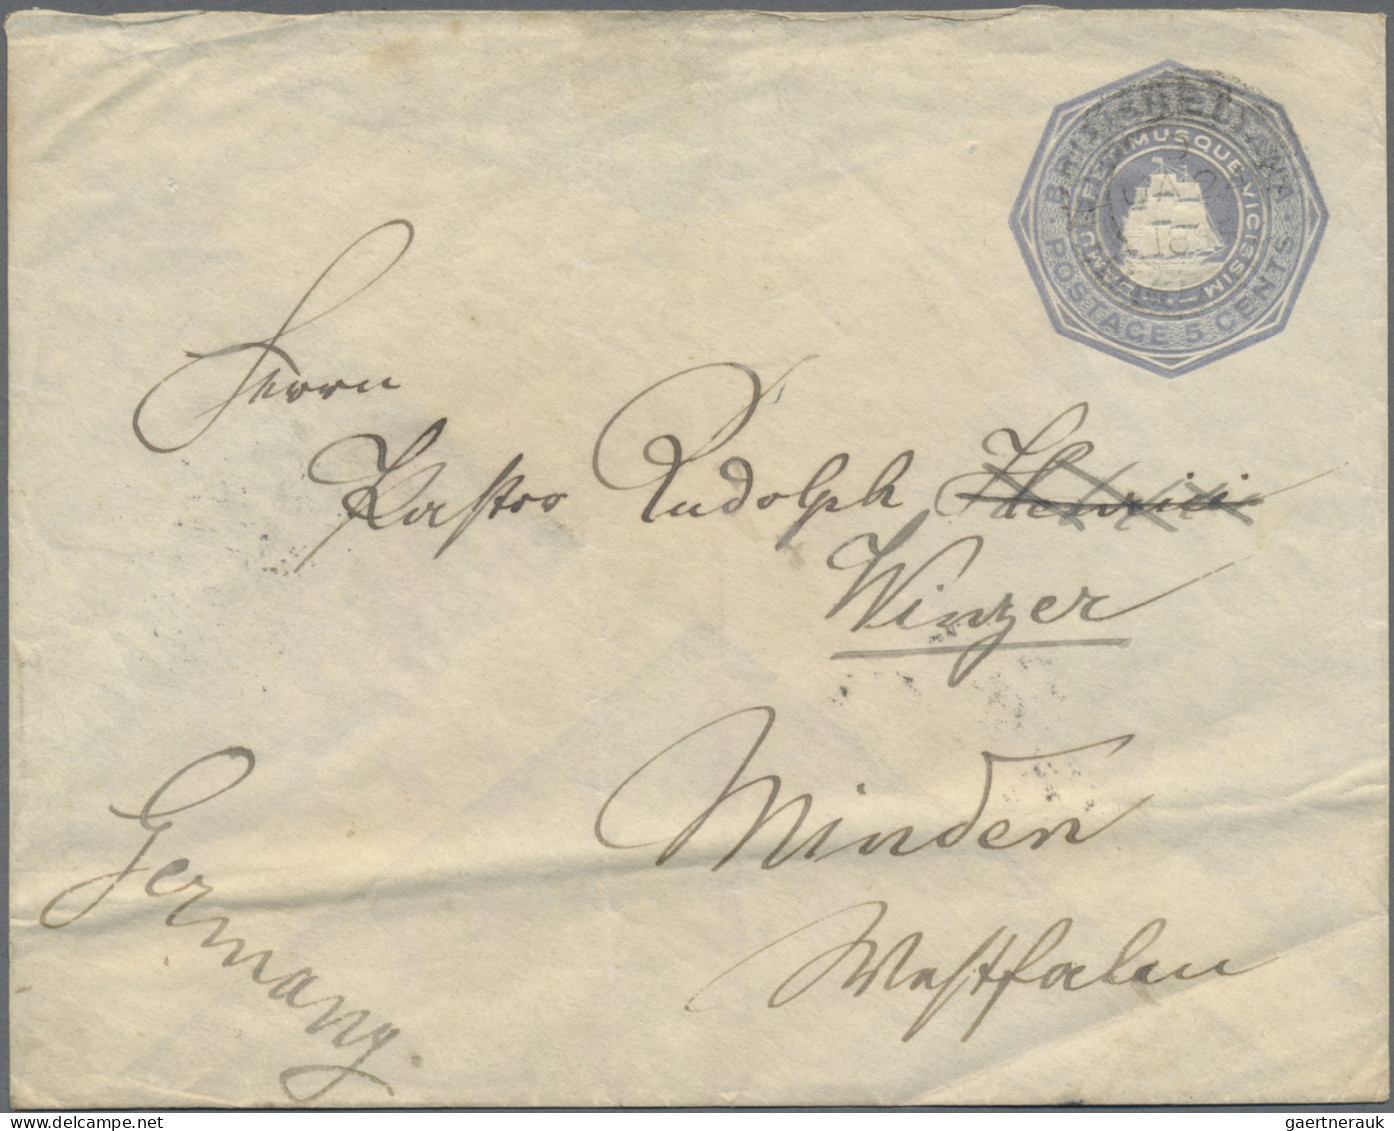 BRITISH GUIANA
DAMUS PETIMUSQUE VICISSIM
POSTAGE 5 CENTS
Herrn
Pastor Rudolph Henrici
Winzer
Minden
Westfalen
Germany.
gaertnerauk